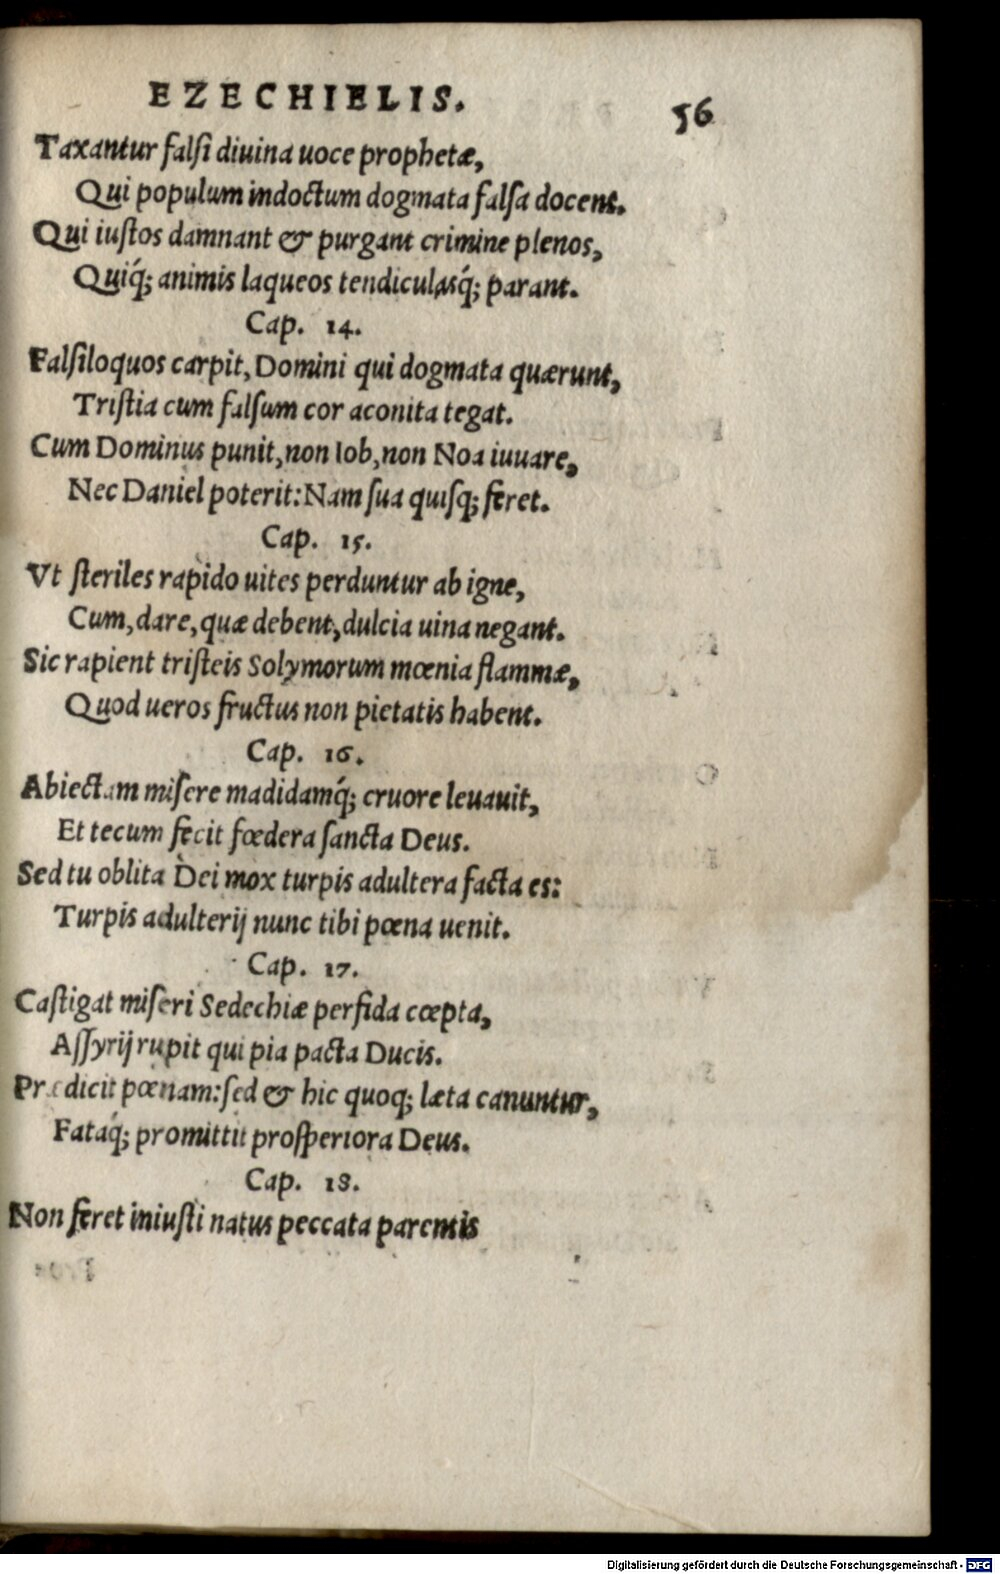 EZECHIELIS. 56
Taxantur falſi diuina uoce prophetæ,
Qui populum indoctum dogmata falſa docent.
Qui iuſtos damnant & purgant crimine plenos,
Quiq́; animis laqueos tendiculasq́; parant.
Cap. 14.
Falſiloquos carpit, Domini qui dogmata quærunt,
Triſtia cum falſum cor aconita tegat.
Cum Dominus punit, non Iob, non Noa iuuare,
Nec Daniel poterit: Nam ſua quiſq; feret.
Cap. 15.
Vt ſteriles rapido uites perduntur ab igne,
Cum, dare, quæ debent, dulcia uina negant.
Sic rapient triſteis Solymorum mœnia flammæ,
Quod ueros fructus non pietatis habent.
Cap. 16.
Abiectam miſere madidamq́; cruore leuauit,
Et tecum fecit fœdera ſancta Deus.
Sed tu oblita Dei mox turpis adultera facta es:
Turpis adulterij nunc tibi pœna uenit.
Cap. 17.
Caſtigat miſeri Sedechiæ perfida cœpta,
Aſſyrij rupit qui pia pacta Ducis.
Prædicit pœnam: ſed & hic quoq; læta canuntur,
Fataq́; promittit proſperiora Deus.
Cap. 18.
Non feret iniuſti natus peccata parentis
Digitalisierung gefördert durch die Deutsche Forschungsgemeinschaft - DFG